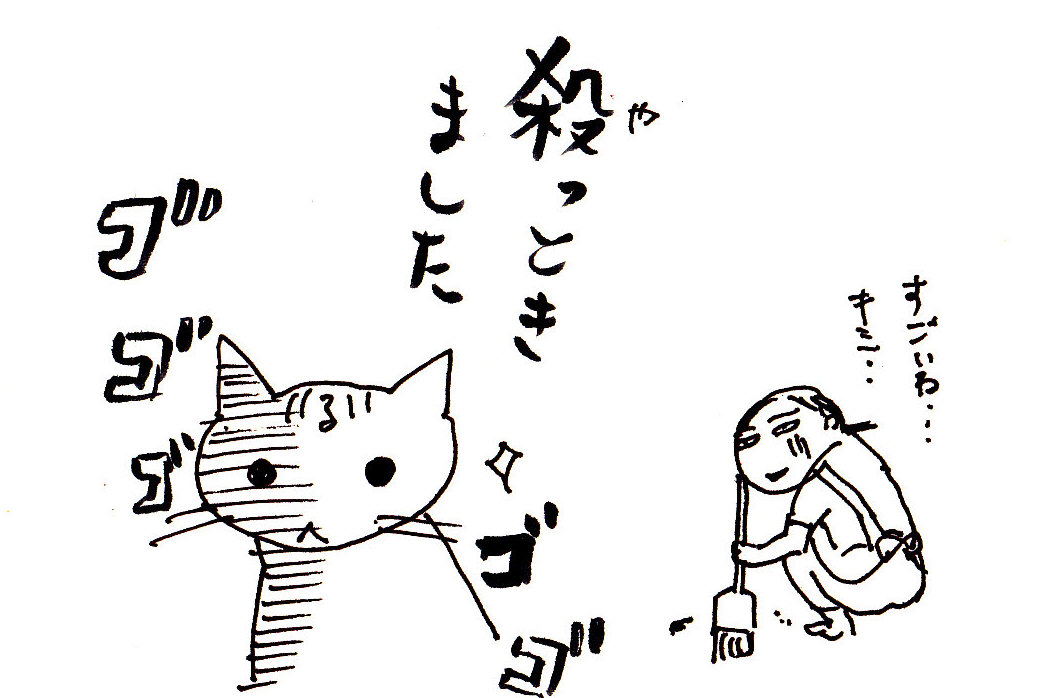 殺っとき
や
ました
すごいね・・・
キミ・・
ゴ
ゴ
ゴ
ゴ
ゴ